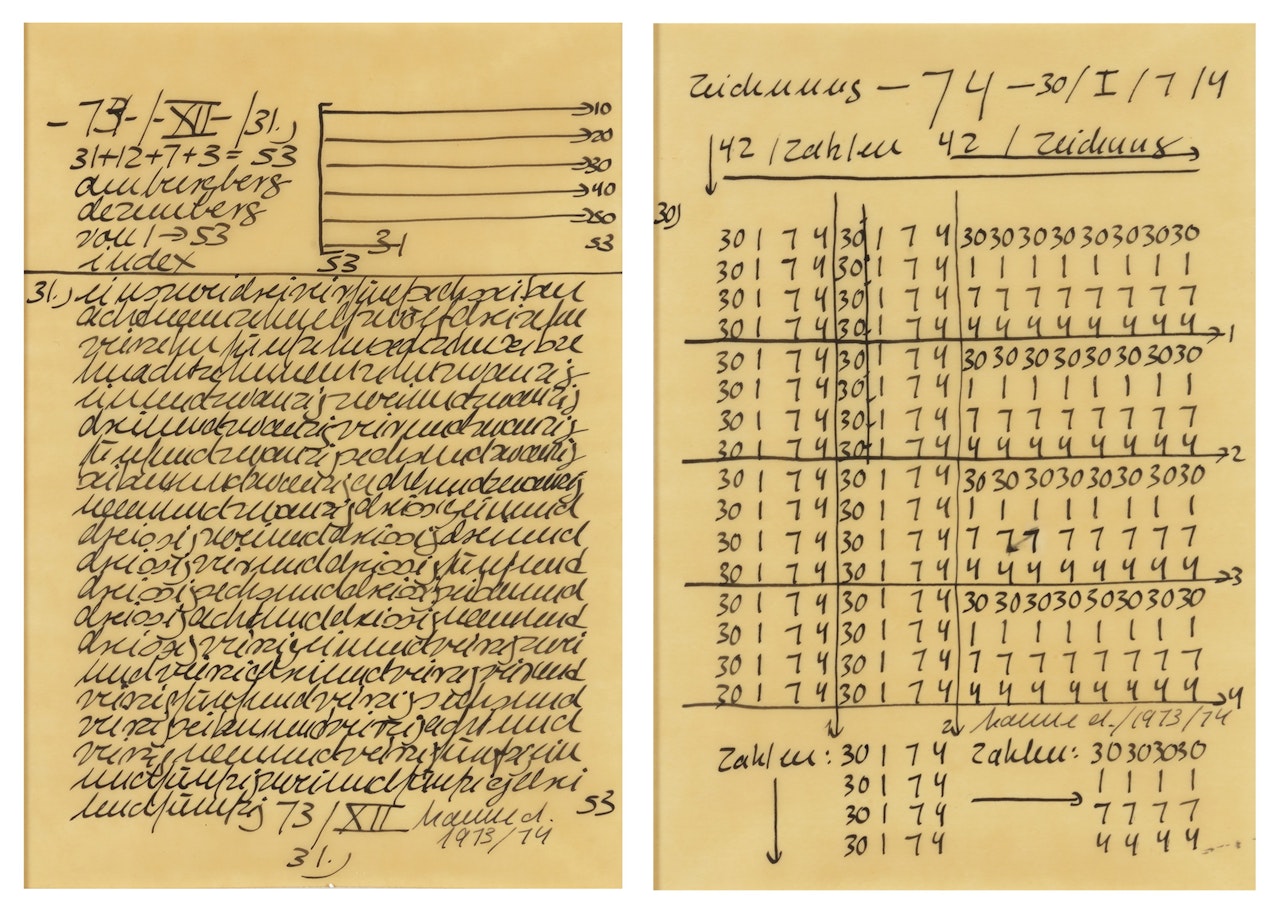 -73-/-XII-/31.)
31+12+7+3= 53
am burgberg
dezemberg
von 1 → 53
index
→10
→20
→30
→40
→50
31 53
53
31.) einszweidreivierfünfsechssieben
achtneunzehnelfzwölfdreizehn
vierzehnfünfzehnsechzehnsiebze
hnachtzehnneunzehnzwanzig
einundzwanzigzweiundzwanzig
dreiundzwanzigvierundzwanzig
fünfundzwanzigsechsundzwanzig
siebenundzwanzigachtundzwanzig
neunundzwanzigdreissigeinund
dreissigzweiunddreissigdreiund
dreissigvierunddreissigfünfund
dreissigsechsunddreissigsiebenund
dreissigachtunddreissigneunund
dreissigvierzigeinundvierzigzwei
undvierzigdreiundvierzigvierund
vierzigfünfundvierzigsechsund
vierzigsiebenundvierzigachtund
vierzigneunundvierzigfünfzigein
undfünfzigzweiundfünfzigdrei
undfünfzig 73/XII hanne d. 53
1973/74
31.)
Zeichnung – 74 – 30/I/7/4
↓ 42 / Zahlen 42 / Zeichnung →
30)
30 1 7 4 30 1 7 4 30 30 30 30 30 30 30 30
30 1 7 4 30 1 7 4 1 1 1 1 1 1 1 1
30 1 7 4 30 1 7 4 7 7 7 7 7 7 7 7
30 1 7 4 30 1 7 4 4 4 4 4 4 4 4 4 → 1
30 1 7 4 30 1 7 4 30 30 30 30 30 30 30 30
30 1 7 4 30 1 7 4 1 1 1 1 1 1 1 1
30 1 7 4 30 1 7 4 7 7 7 7 7 7 7 7
30 1 7 4 30 1 7 4 4 4 4 4 4 4 4 4 → 2
30 1 7 4 30 1 7 4 30 30 30 30 30 30 30 30
30 1 7 4 30 1 7 4 1 1 1 1 1 1 1 1
30 1 7 4 30 1 7 4 7 7 7 7 7 7 7 7
30 1 7 4 30 1 7 4 4 4 4 4 4 4 4 4 → 3
30 1 7 4 30 1 7 4 30 30 30 30 30 30 30 30
30 1 7 4 30 1 7 4 1 1 1 1 1 1 1 1
30 1 7 4 30 1 7 4 7 7 7 7 7 7 7 7
30 1 7 4 30 1 7 4 4 4 4 4 4 4 4 4 → 4
1 2 hanne d./1973/74
Zahlen: 30 1 7 4 Zahlen: 30 30 30 30
30 1 7 4 1 1 1 1
30 1 7 4 → 7 7 7 7
30 1 7 4 4 4 4 4